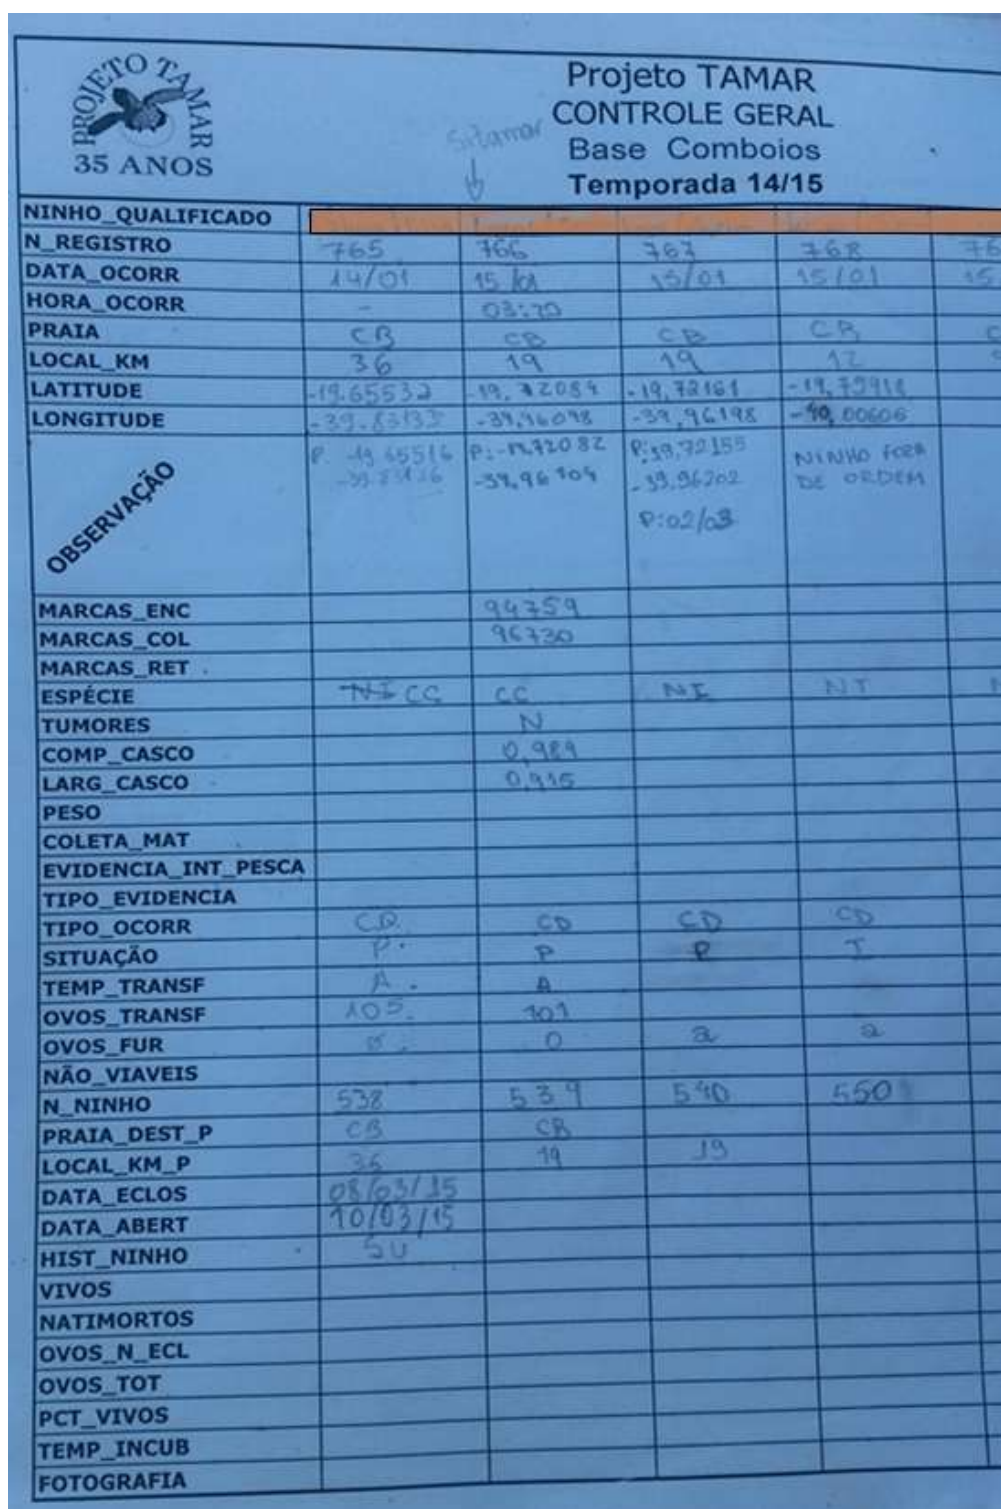 PROJETO TAMAR
35 ANOS
Projeto TAMAR
CONTROLE GERAL
Base Comboios
Temporada 14/15
Sitamar
NINHO_QUALIFICADO
N_REGISTRO 765 766 767 768 76
DATA_OCORR 14/01 15/01 15/01 15/01 15
HORA_OCORR - 03:20
PRAIA CB CB CB CB C
LOCAL_KM 36 19 19 12
LATITUDE -19.65532 -19,72084 -19,72161 -19,75918
LONGITUDE -39.83133 -39,96098 -39,96198 -40,00606
OBSERVAÇÃO
P. -19 65516 P:-19,72082 P:19,72155 NINHO FORA
-39.83126 -39,96104 -39,96202 DE ORDEM
P:02/03
MARCAS_ENC 94759
MARCAS_COL 96730
MARCAS_RET
ESPÉCIE NI CC CC NI NI N
TUMORES N
COMP_CASCO 0,989
LARG_CASCO 0,915
PESO
COLETA_MAT
EVIDENCIA_INT_PESCA
TIPO_EVIDENCIA
TIPO_OCORR CD CD CD CD
SITUAÇÃO P. P P I
TEMP_TRANSF A. A
OVOS_TRANSF 105. 101
OVOS_FUR 0. 0 2 2
NÃO_VIAVEIS
N_NINHO 538 539 540 550
PRAIA_DEST_P CB CB
LOCAL_KM_P 36 19 19
DATA_ECLOS 08/03/15
DATA_ABERT 10/03/15
HIST_NINHO SU
VIVOS
NATIMORTOS
OVOS_N_ECL
OVOS_TOT
PCT_VIVOS
TEMP_INCUB
FOTOGRAFIA